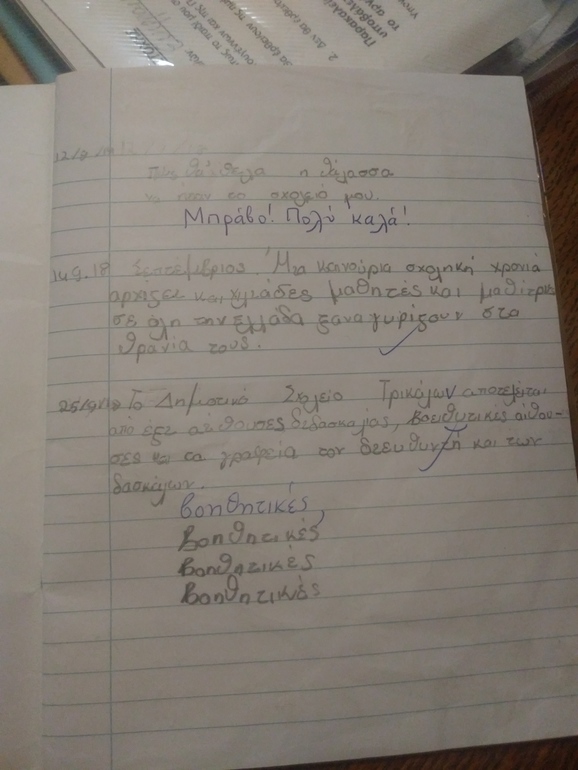 Παρακαλεί
υποβάλε
το αρχ
2 Δεν θα
12/9/18
Πόσο θα ήθελα η θάλασσα
να ήταν το σχολείο μου.
Μπράβο! Πολύ καλά!
14.9.18 Σεπτέμβριος. Μια καινούρια σχολική χρονιά
αρχίζει και χιλιάδες μαθητές και μαθίτριες
σε όλη την Ελλάδα ξαναγυρίζουν στα
θρανία τους.
25/9/18 Το Δημοτικό Σχολείο Τρικάλων αποτελείται
από έξι αίθουσες διδασκαλίας, βοειθυτικές αίθου-
σες και τα γραφεία του διευθυντή και των
δασκάλων.
βοηθητικές,
Βοηθητικές
Βοηθητικές
Βοηθητικές